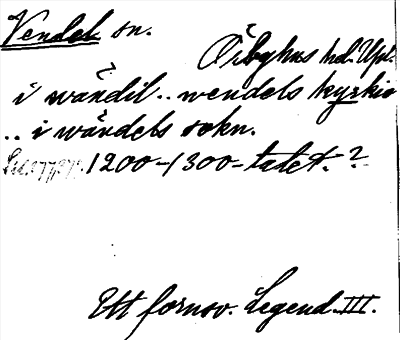 Vendel sn.
Örbyhus hd. Upl.
i wändil.. wendels kyrkio
.. i wändels sokn.
1200-1300-talet.?
Ett fornsv. Legend. III.